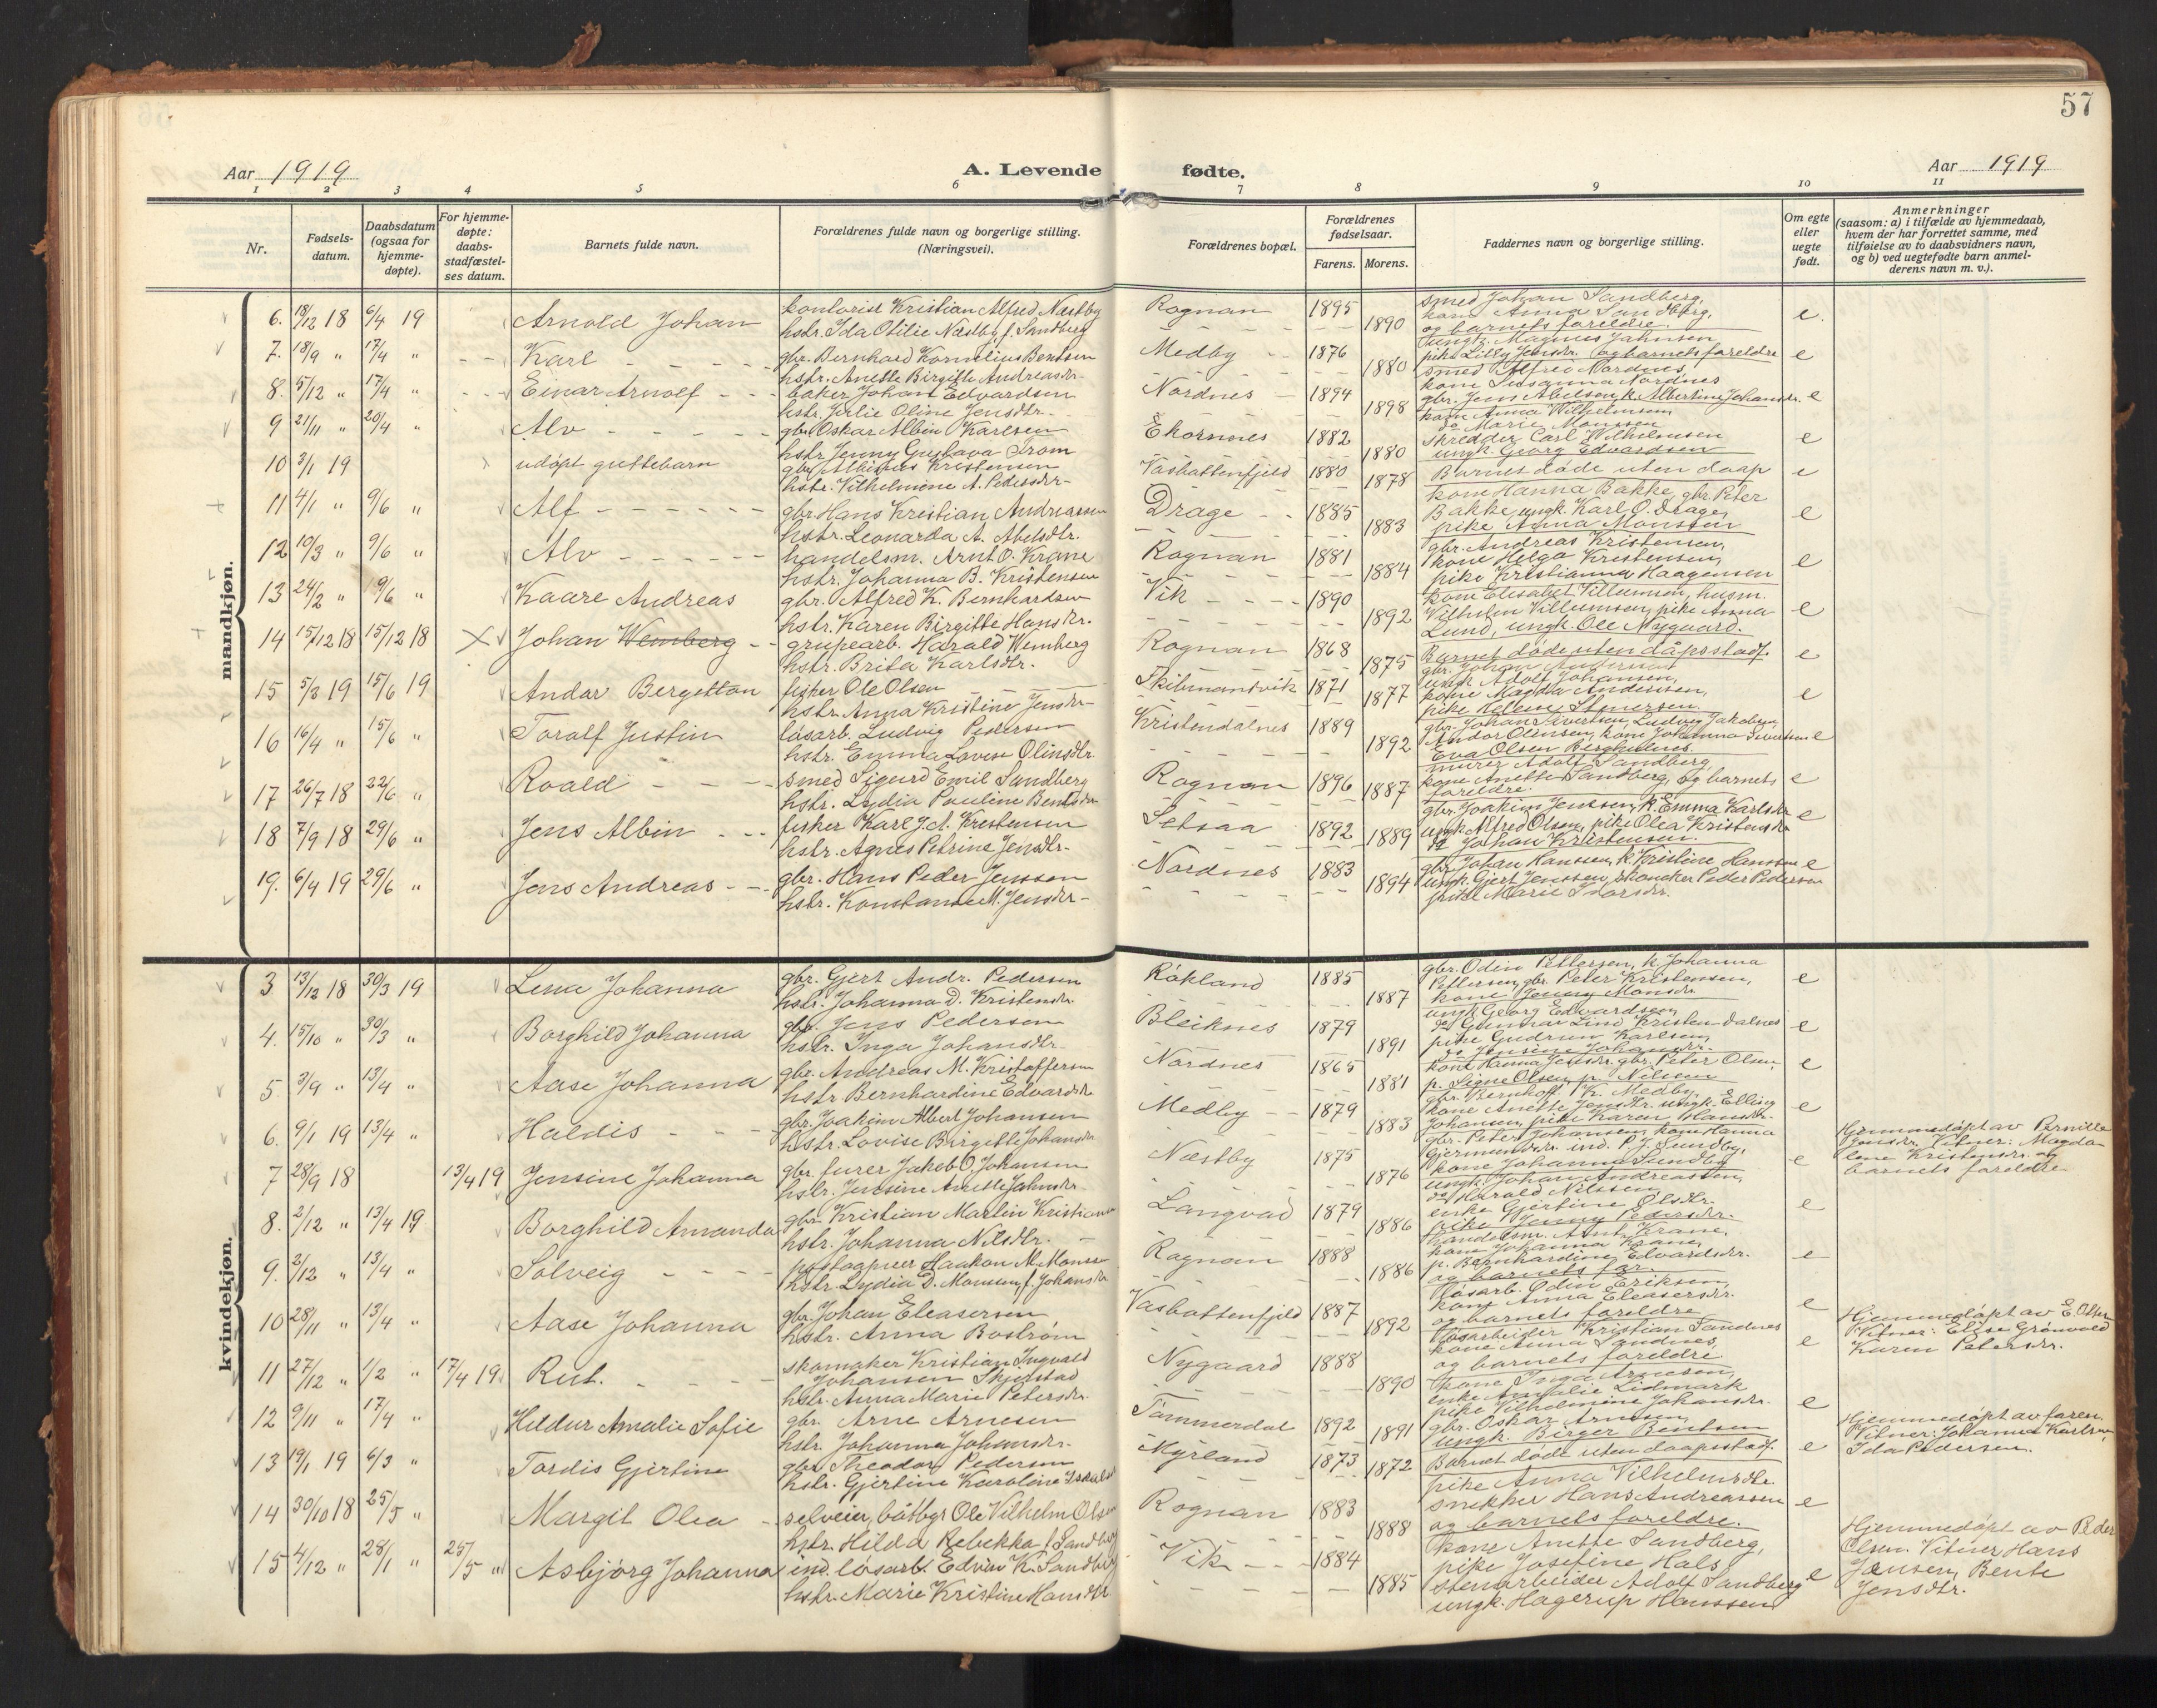 57
Aar 1919
A. Levende fødte.
Aar 1919
1 2 3 4 5 6 7 8 9 10 11
Nr.
Fødsels-
datum.
Daabsdatum
(ogsaa for
hjemme-
døpte).
For hjemme-
døpte:
daabs-
stadfæstel-
ses datum.
Barnets fulde navn.
Forældrenes fulde navn og borgerlige stilling.
(Næringsvei).
Forældrenes bopæl.
Forældrenes
fødselsaar.
Farens. Morens.
Faddernes navn og borgerlige stilling.
Om egte
eller
uegte
født.
Anmerkninger
(saasom: a) i tilfælde av hjemmedaab,
hvem der har forrettet samme, med
tilføielse av to daabsvidners navn,
og b) ved uegtefødte barn anmel-
derens navn m. v.).
mandkjøn.
6. 18/12 18 6/4 19 Arnold Johan
kontorist Kristian Alfred Næstby
hstr. Ida Otilie Næstby, f. Sandberg
Rognan 1895 1890
smed Johan Sandberg,
kone Anna Sandberg,
og barnets foreldre.
e.
7. 18/9 " 17/4 " Karl
gbr. Bernhard Kornelius Bentsen
hstr. Anette Birgitte Andreasdr.
Medby 1876 1880
ungk. Magnus Jahnsen
pike Lilly Jensdr. og barnets foreldre
e
8. 5/12 " 17/4 " Einar Arnolf
baker Johan Edvardsen
hstr. Julie Oline Jensdtr.
Nordnes 1894 1898
smed Alfred Nordnes,
kone Susanna Nordnes
gbr. Jens Abelsen, k. Albertine Johansdr.
e
9 21/11 " 20/4 " Alv
gbr. Oskar Albin Karlsen
hstr. Jenny Gustava Trom
Ekornnes 1882 1880
kone Anna Wilhelmsen
do Marie Monssen
skredder Carl Wilhelmsen
ungk. Georg Edvardsen
e
10 3/1 19 udøpt guttebarn
gbr. Albinius Kristensen
hstr. Vilhelmine A. Pedersdr.
Vasbottenfjeld 1880 1878
Barnet døde uten daap
e
11 4/1 " 9/6 " Alf
gbr. Hans Kristian Andreassen
hstr. Leonarda A. Abelsdtr.
Drage 1885 1883
kone Hanna Bakke, gbr. Peter
Bakke, ungk. Karl O. Drage,
pike Anna Monssen
e
12 10/3 " 9/6 " Alv
handelsm. Arnt O. Krane
hstr. Johanna B. Kristensen
Rognan 1881 1884
gbr. Andreas Kristensen,
kone Helga Kristensen,
pike Kristianna Haagensen
e
13 24/2 " 9/6 " Kaare Andreas
gbr. Alfred K. Bernhardsen
hstr. Karen Birgitte Hansdr.
Vik 1890 1892
kone Elisabet Villumsen, husm.
Vilhelm Villumsen, pike Anna
Lund, ungk. Ole Nygaard.
e
14 15/12 18 15/12 18 X Johan Wemberg
grupearb. Harald Wemberg
hstr. Brita Karlsdtr.
Rognan 1868 1875
Barnet døde uten dåpsstadf.
e
15 5/3 19 15/6 19 Andor Bergetton
fisker Ole Olsen
hstr. Anna Kristine Jensdr.
Skibmandvik 1871 1877
gbr. Johan Andersen
ungk. Adolf Johansen,
kone Magda Andersen,
pike Helene Stenersen.
e
16 16/4 " 15/6 " Toralf Justin
løsarb. Ludvig Pedersen
hstr. Emma Lovise Olinsdtr.
Kristendalnes 1889 1892
gbr. Johan Sivertsen, Ludvig Jakobsen,
Andor Olinsen, kone Johanna Sivertsen
Eva Olsen Berghulnes.
e
17 26/7 18 22/6 " Roald
smed Sigurd Emil Sandberg
hstr. Lydia Pauline Bentsdr
Rognan 1896 1887
murer Adolf Sandberg,
kone Anette Sandberg, og barnets
foreldre.
e
18 7/9 18 29/6 " Jens Albin
fisker Karl J. A. Kristensen
hstr. Agnes Petrine Jensdtr.
Setsaa 1892 1889
gbr. Joakim Jenssen, k. Emma Karlsdr
ungk. Alfred Olsen, pike Olea Kristensdr
do Johan Kristensen.
e
19. 6/4 19 29/6 " Jens Andreas
gbr. Hans Peder Jenssen
hstr. Konstanse M. Jensdr.
Nordnes 1883 1894
gbr. Johan Hanssen, k. Kristine Hanssen
ungk. Gjert Jenssen, skomaker Peder Pedersen
pike Marie Ivarsdr.
e
kvindekjøn.
3 13/12 18 30/3 19 Lena Johanna
gbr. Gjert Andr. Pedersen
hstr. Johanna D. Kristensdr.
Røkland 1885 1887
gbr. Odin Pettersen, k. Johanna
Pettersen, gbr. Peter Kristensen,
kone Jenny Monsdr.
e
4. 15/10 " 30/3 " Borghild Johanna
gbr. Jens Pedersen
hstr. Inga Johansdtr.
Bleiknes 1879 1891
ungk. Georg Edvardsen,
do Gunnar Lind Kristen-dalnes
pike Gudrun Karlsen,
do Jensine Johansdr.
e
5. 3/9 " 13/4 " Aase Johanna
gbr. Andreas M. Kristoffersen
hstr. Bernhardine Edvardsdr
Nordnes 1865 1881
kone Hanna Jensdr. gbr. Peter Olsen,
p. Signe Olsen, p. Nilsen
e
6. 9/1 19 13/4 " Haldis
gbr. Joakim Albert Johansen
hstr. Lovise Birgitte Johansdr
Medby 1879 1883
gbr. Bernhoff K. Medby,
kone Anette Jensdr. ungk. Elling
Johansen, pike Karen Hansdr.
e
7 28/9 18 13/4 19 Jensine Johanna
gbr. furer Jakob O. Johansen
hstr. Jensine Anette Jahnsdr.
Næstby 1875 1876
gbr. Peter Johansen, kone Hanna
Gjermundsdr. ind. P. J. Sundby,
kone Johanna Sundby
e
Hjemmedøpt av Pernille
Jensdr. Vitner: Magda-
lene Kristensdr. og
barnets foreldre
8. 2/12 " 13/4 19 Borghild Amanda
gbr. Kristian Martin Kristiansen
hstr. Johanna Nilsdtr.
Langvad 1879 1886
ungk. Johan Andreassen,
do Harald Nilssen
enke Gjertine Olsdtr.
pike Jenny Pedersdr.
e
9. 2/12 " 13/4 " Solveig
postaapner Haakon M. Monsen
hstr. Lydia D. Monsen, f. Johansdr
Rognan 1888 1886
Handelsm. Arnt Krane,
kone Johanna Krane,
p. Bernhardine Edvardsdr.
og barnets far.
e
10 28/11 " 13/4 " Aase Johanna
gbr. Johan Eleasersen
hstr. Anna Bostrøm
Vasbottenfjeld 1887 1892
løsarb. Odin Eriksen,
kone Anna Eleasersdr.
og barnets foreldre
e
11 27/12 " 1/2 " 17/4 19 Rut.
skomaker Kristian Ingvald
Johansen Skjelstad
hstr. Anna Marie Petersdr.
Nygaard 1888 1890
løsarbeider Kristian Sandnes
kone Anna Sandnes,
og barnets foreldre.
e
Hjemmedøpt av E. Olsen
Vitner: Elise Grønvold
Karen Petersdr.
12 9/11 " 17/4 " Hildur Amalie Sofie
gbr. Arne Arnesen
hstr. Johanna Johansdr.
Tømmerdal 1892 1891
kone Inga Arnesen,
enke Amalie Lidmark
pike Vilhelmine Johansdr.
gbr. Oskar Arnesen,
ungk. Birger Bentsen
e
13 19/1 19 6/3 " Tordis Gjertine
gbr. Theodor Pedersen
hstr. Gjertine Karoline
Myrland 1873 1872
Barnet døde uten daapsstadf.
e
Hjemmedøpt av faren.
Vitner: Johanna Karlsen,
Ida Pedersen.
14 30/10 18 25/5 " Margit Olea
selveier, båtbygr Ole Vilhelm Olsen
hstr. Hilda Rebekka f. Sandberg
Rognan 1883 1888
pike Anna Vilhelmsdtr.
snekker Hans Andreassen
og barnets foreldre.
e
15 4/12 " 28/1 " 25/5 " Asbjørg Johanna
ind. løsarb. Edvin K. Sandberg
hstr. Marie Kristine Hansdtr
Vik 1884 1885
kone Anette Sandberg,
pike Josefine Hals,
stenarbeider Adolf Sandberg
ungk. Hagerup Hanssen
e
Hjemmedøpt av Peder
Olsen. Vitner Hans
Jensen, Bente
Jensdtr.